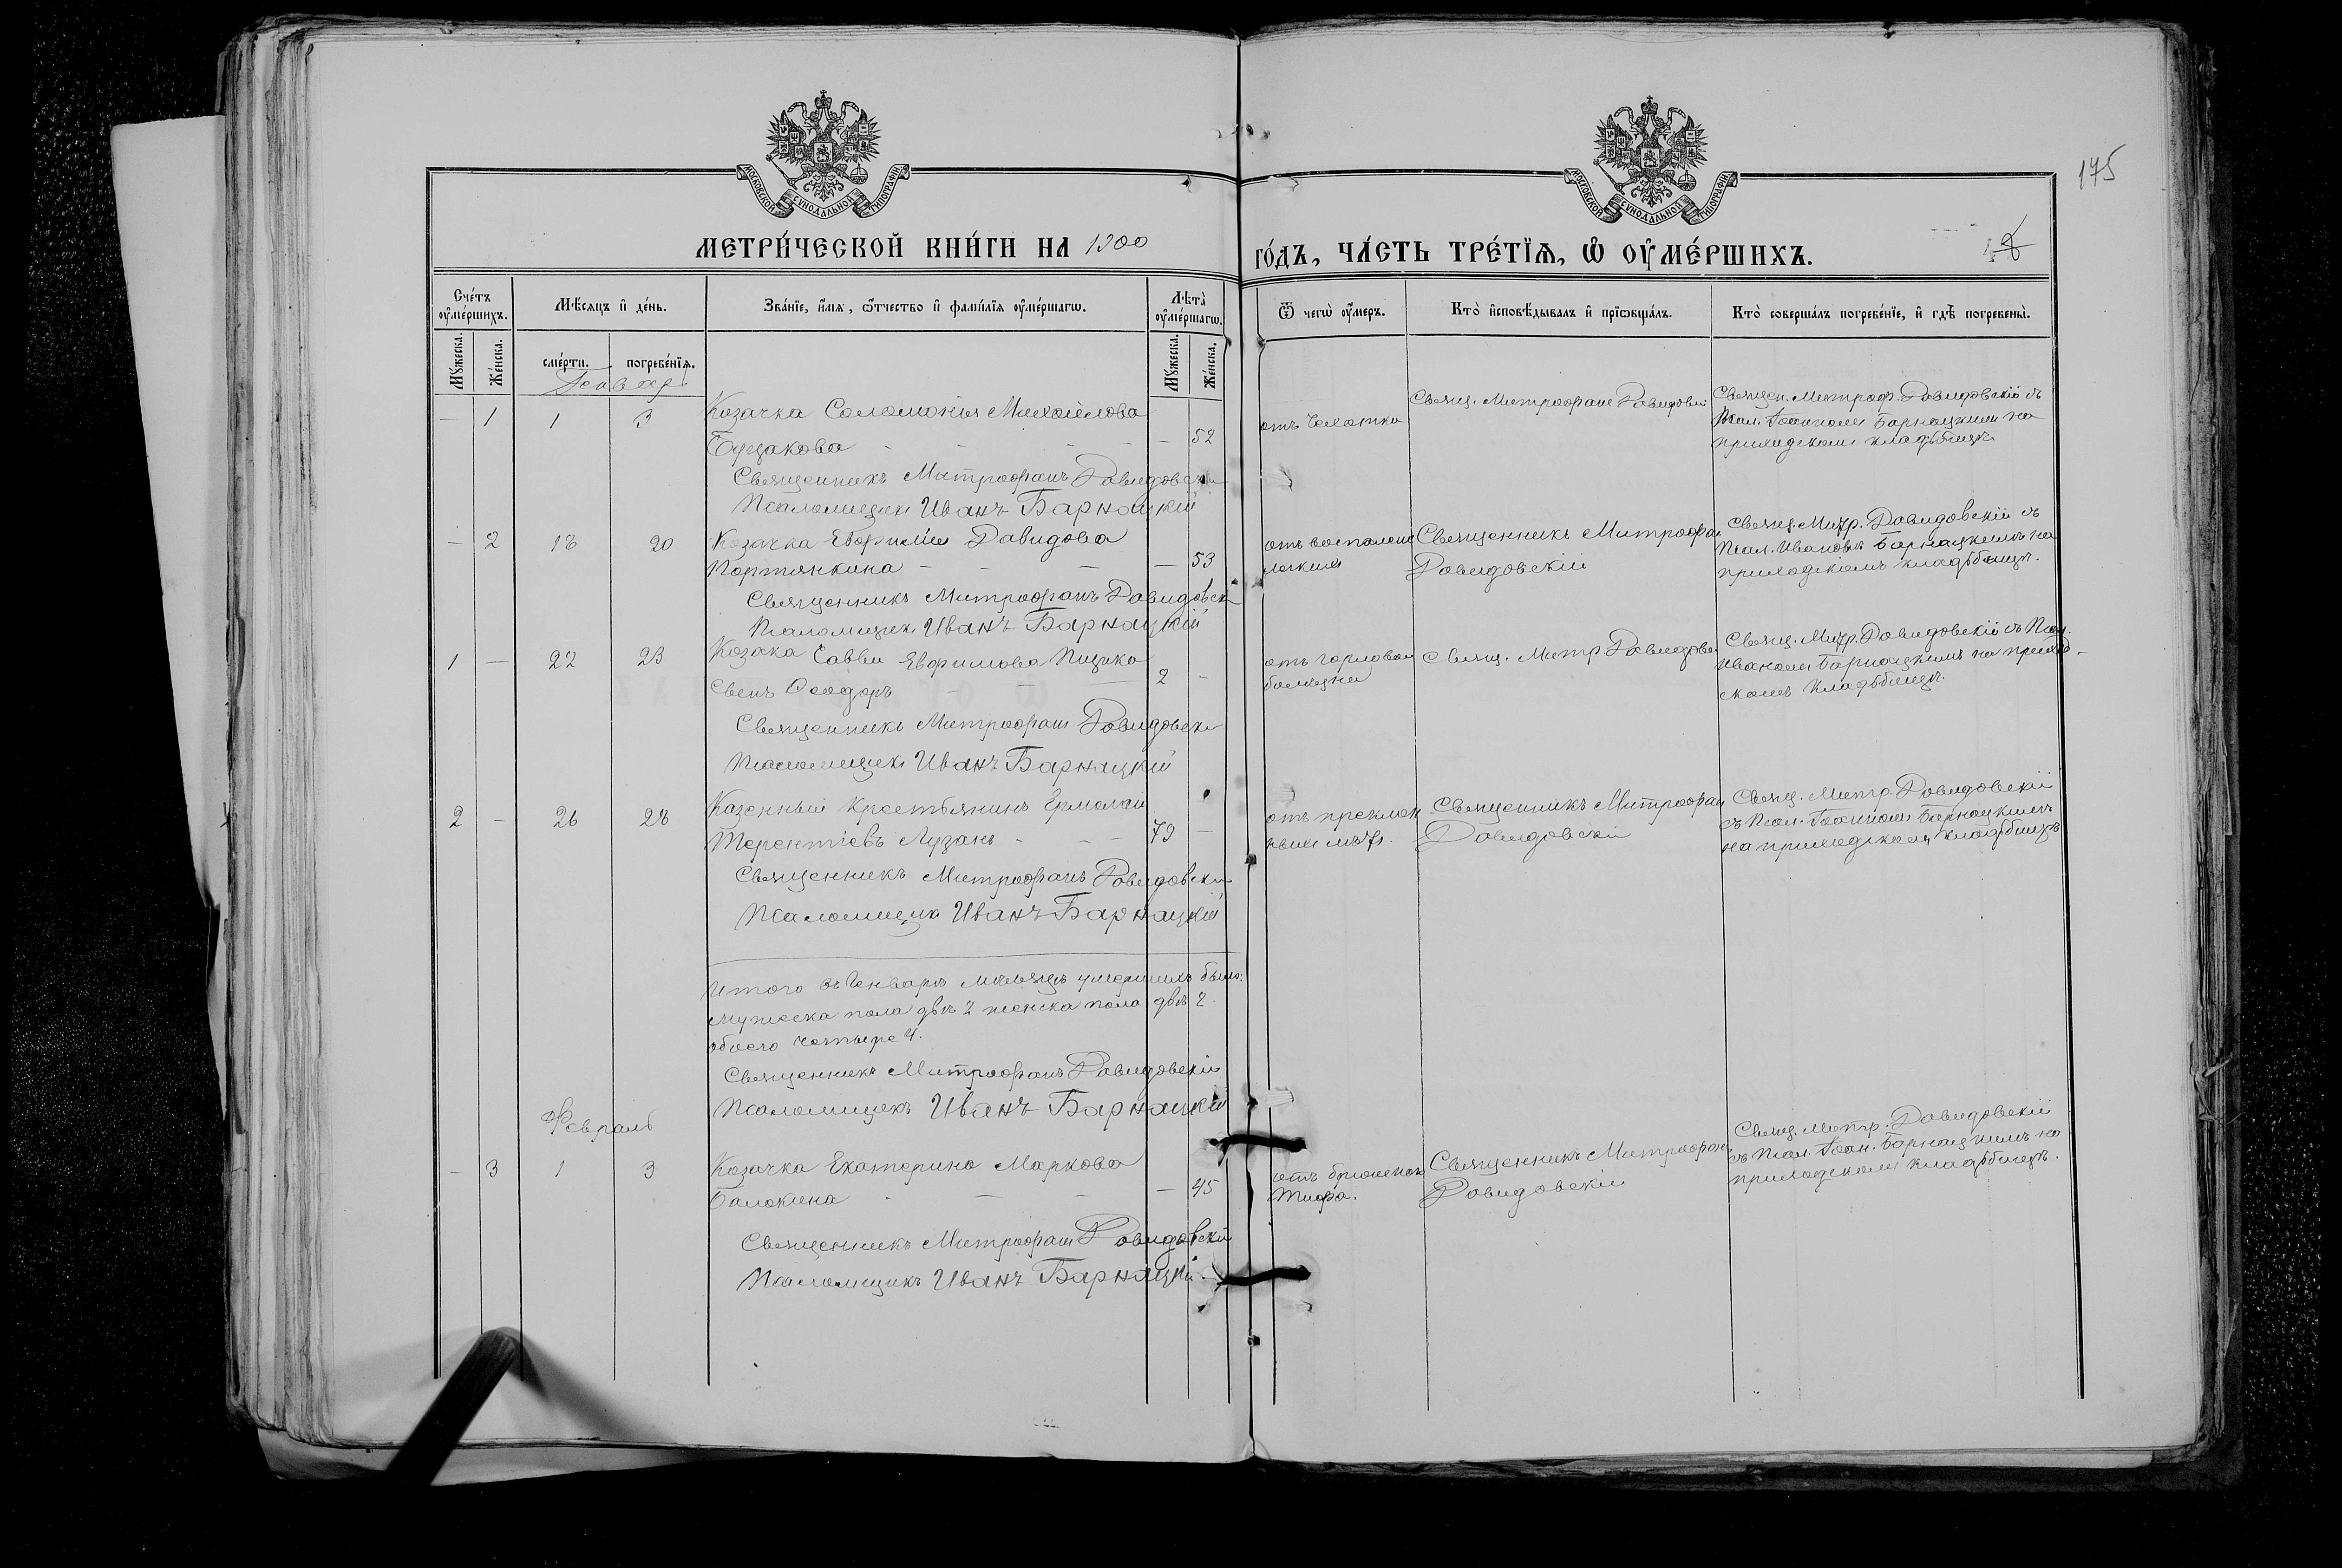 175
МОСКОВСКОЙ СѴНОДАЛЬНОЙ ТИПОГРАФІИ
МОСКОВСКОЙ СѴНОДАЛЬНОЙ ТИПОГРАФІИ
МЕТРИ́ЧЕСКОЙ КНИ́ГИ НА 1900
ГО́ДЪ, ЧА́СТЬ ТРЕ́ТІѦ, Ѡ ОУМЕ́РШИХЪ.
Сче́тъ оуме́ршихъ.
Мꙋ́жеска.
Же́нска.
Мѣ́сяцъ и де́нь.
сме́рти.
погребе́нїѧ.
Зва́нїе, и́мѧ, ѻ́тчество и фами́лїѧ оуме́ршагѡ.
Лѣта̀ оуме́ршагѡ.
Мꙋ́жеска.
Же́нска.
Ѿ чегѡ̀ оу́меръ.
Кто̀ исповѣ́дывалъ и прїѡбща́лъ.
Кто̀ соверша́лъ погребе́нїе, и гдѣ̀ погребены̀.
— 1 1 3 Козачка Соломонія Михайлова
— 52
Священникъ Митрофанъ Давидовскій
Псаломщикъ Иванъ Барнацкій
отъ чахотки
Свящ. Митрофанъ Давидовскі
Священ. Митроф. Давидовскій съ
Псал. Іоанномъ Барнацкимъ на
приходскомъ кладбищѣ
— 2 18 20 Козачка Евфимія Давидова
Портянкина — — — — 53
Священникъ Митрофанъ Давидовскі
Псаломщикъ Иванъ Барнацкій
отъ воспаленія
легкихъ
Священникъ Митрофан
Давидовскій
Свящ. Митр. Давидовскій съ
Псал. Иваномъ Барнацкимъ на
приходскомъ кладбищѣ.
1 — 22 23 Козака Саввы Евфимова
Сынъ Ѳеодоръ — — — 2 —
Священникъ Митрофанъ Давидовскі
Псаломщикъ Иванъ Барнацкій
отъ горловой
болѣзни
Свящ. Митр. Давидовс
Свящ. Митр. Давидовскій съ Псал.
Иваномъ Барнацкимъ на приход-
скомъ кладбищѣ.
2 — 26 28 Казенный крестьянинъ Ермолай
Терентіевъ Лузанъ — — — 79 —
Священникъ Митрофанъ Давидовскі
Псаломщикъ Иванъ Барнацкій
отъ преклон
ныхъ лѣтъ.
Священникъ Митрофан
Давидовскі
Свящ. Митр. Давидовскій
съ Псал. Іоанномъ Барнацкимъ
на приходскомъ кладбищѣ
Итого въ Генварѣ мѣсяцѣ умершихъ было:
мужеска пола два 2 женска пола двѣ 2
обоего четыре 4.
Священникъ Митрофанъ Давидовскій
Псаломщикъ Иванъ Барнацкій
Февраль
— 3 1 3 Козачка Екатерина Маркова
— — — — 45
Священникъ Митрофанъ Давидовскій
Псаломщикъ Иванъ Барнацкій
отъ брюшного
тифа.
Священникъ Митрофан
Давидовскій
Свящ. Митр. Давидовскій
съ Псал. Іоан. Барнацкимъ на
приходскомъ кладбищѣ.